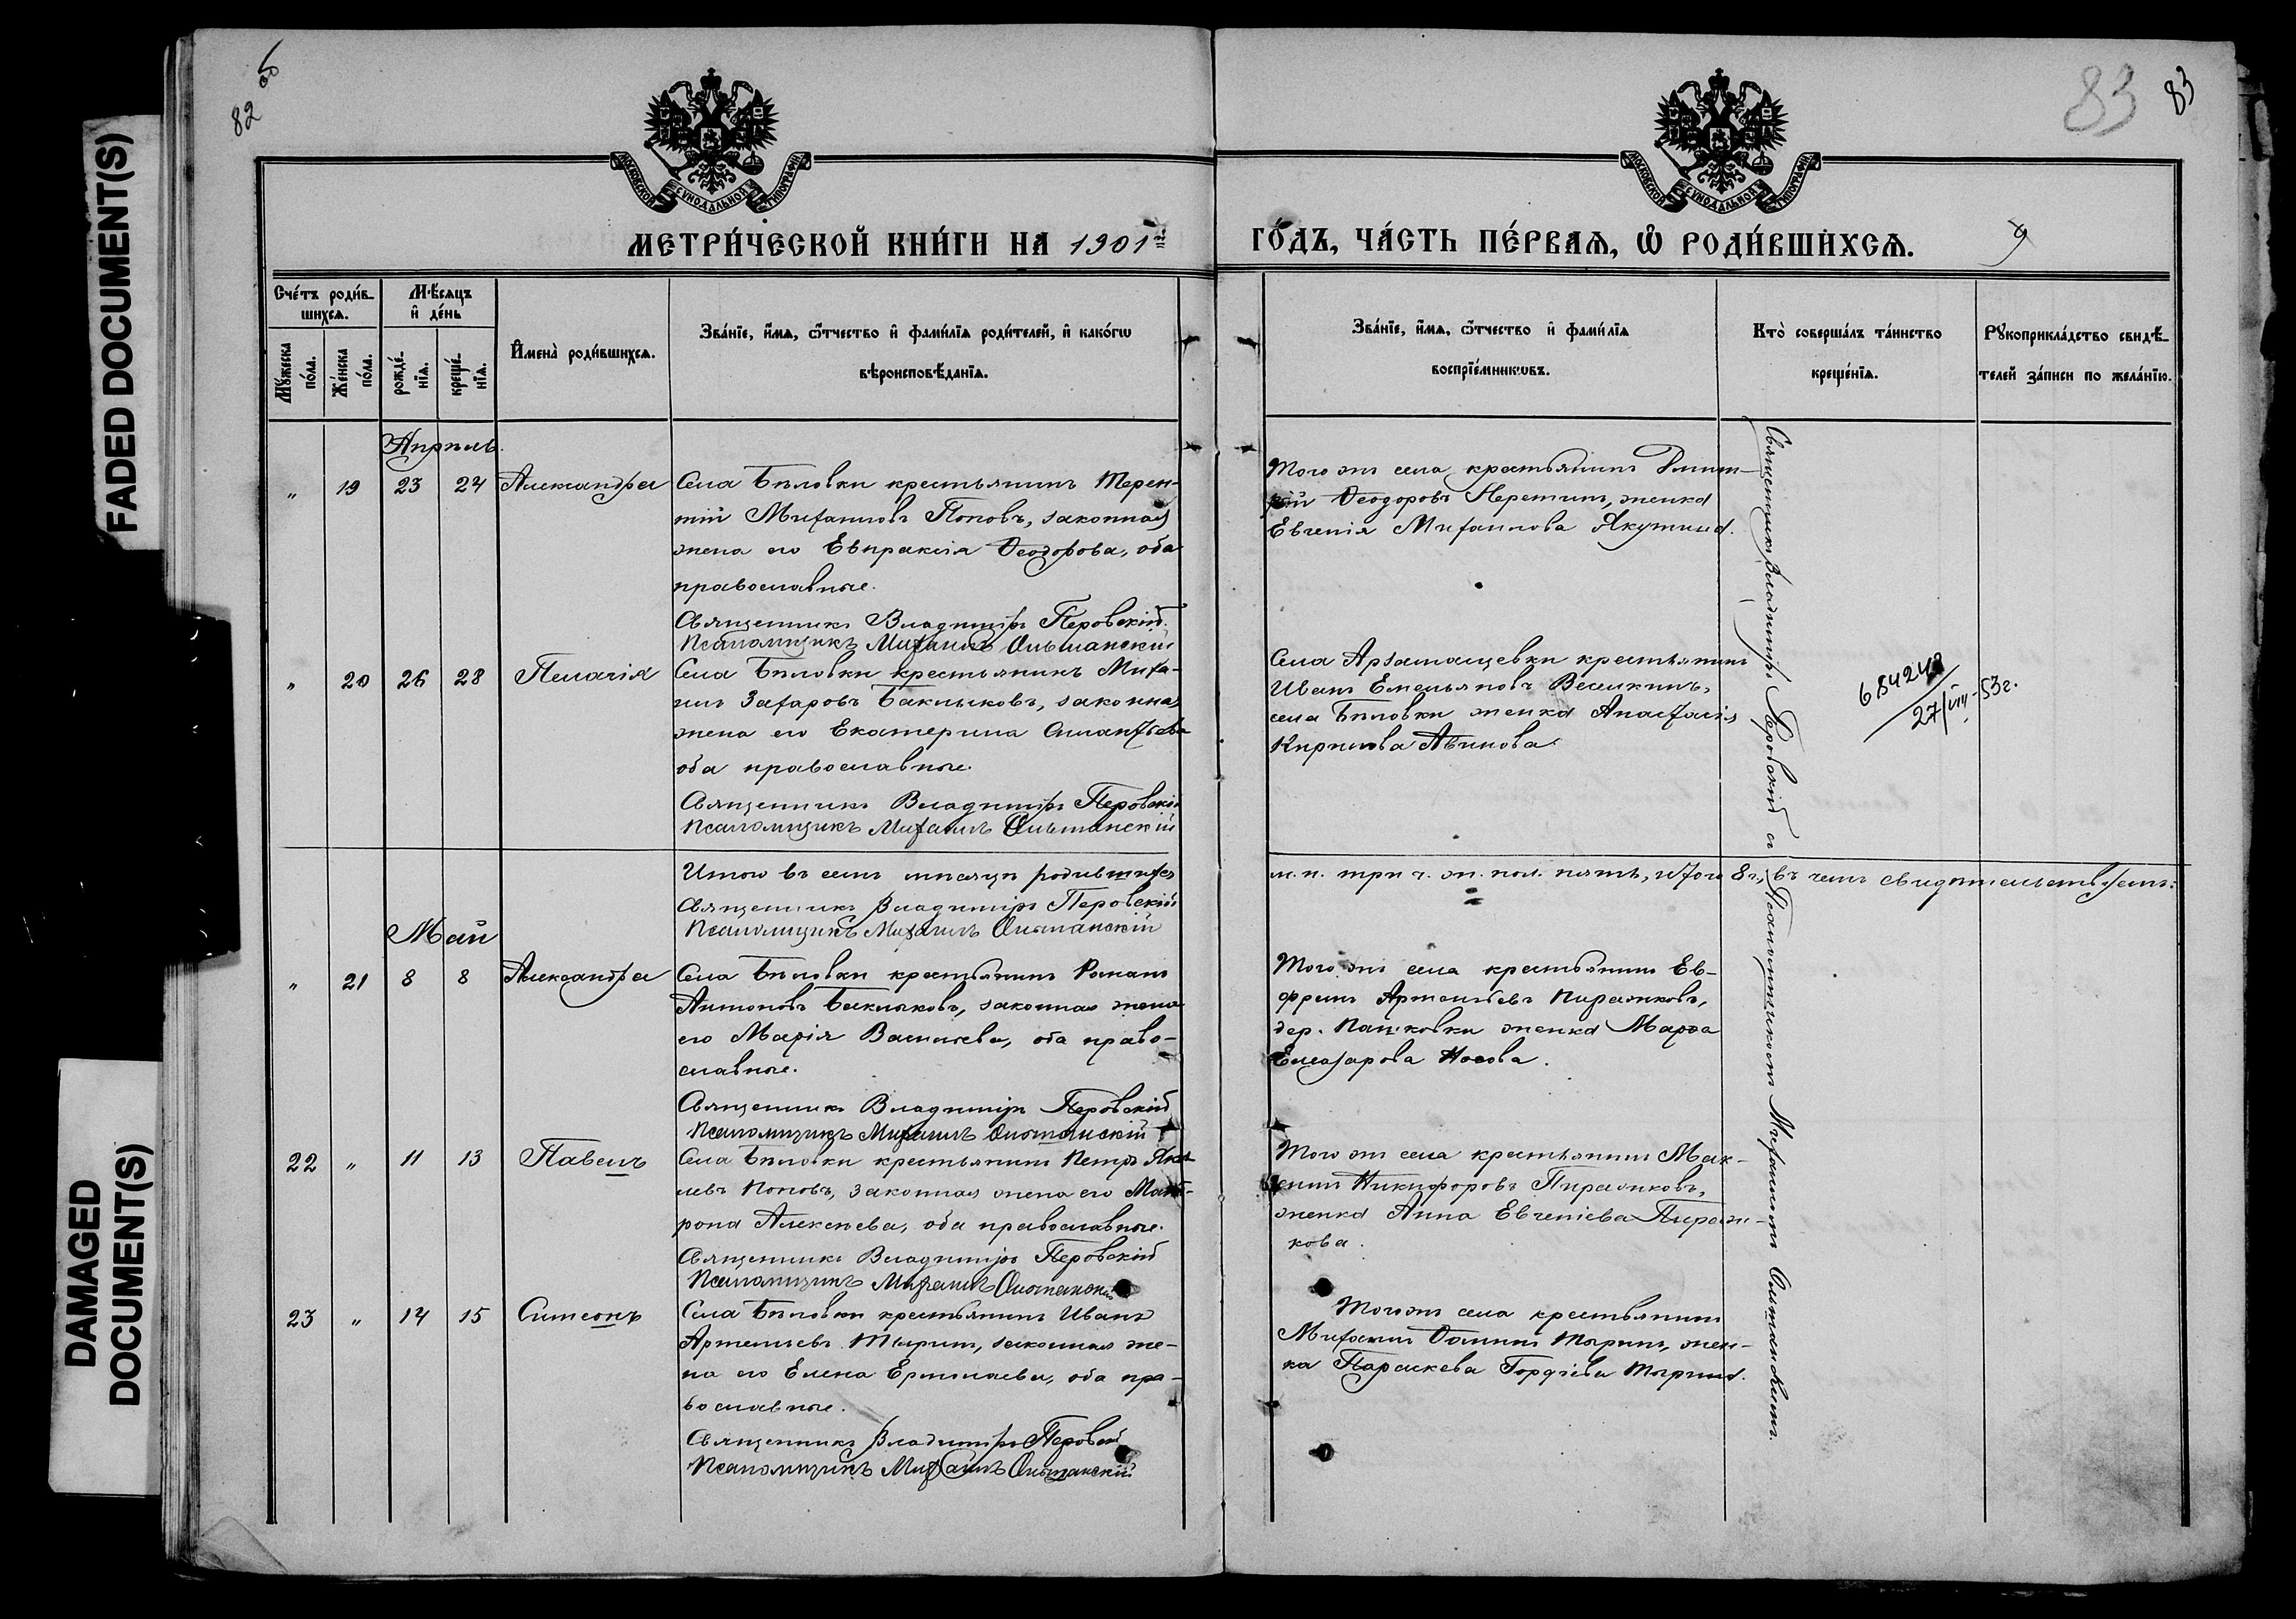 FADED DOCUMENT(S)
DAMAGED
DOCUMENT(S)
82 об
83
83
МОСКОВСКОЙ СѴНОДАЛЬНОЙ ТИПОГРАФІИ
МОСКОВСКОЙ СѴНОДАЛЬНОЙ ТИПОГРАФІИ
МЕТРИ́ЧЕСКОЙ КНИ́ГИ НА 1901й
ГО́ДЪ, ЧА́СТЬ ПЕ́РВАѦ, Ѡ҆ РОДИ́ВШИХСѦ.
9
Сче́тъ роди́в-
шихсѧ.
Мꙋжеска по́ла.
Же́нска по́ла.
Мѣ́сѧцъ
и҆ де́нь
рожде́-
нїѧ.
креще́-
нїѧ.
И҆мена̀ роди́вшихсѧ.
Зва́нїе, и҆́мѧ, ѻ҆́тчество и҆ фами́лїѧ роди́телей, и҆ како́гѡ
вѣроисповѣ́данїѧ.
Зва́нїе, и҆́мѧ, ѻ҆́тчество и҆ фами́лїѧ
воспрїе́мникѡвъ.
Кто̀ соверша́лъ та́инство
креще́нїѧ.
Рꙋкоприкла́дство свидѣ́-
телей за́писи по жела́нїю.
Апрѣль.
„ 19 23 24 Александра
Села Бѣловки крестьянинъ Терен-
тій Михаиловъ Поповъ, законная
жена его Евпраксія Ѳеодорова, оба
православные.
Священникъ Владиміръ Перовскій.
Псаломщикъ Михаилъ Ольшанскій
Того же села крестьянинъ Димит-
рій Ѳеодоровъ Неретинъ, женка
Евгенія Михаилова Якутина.
„ 20 26 28 Пелагія
Села Бѣловки крестьянинъ Миха-
илъ Захаровъ Баклыковъ, законная
жена его Екатерина Силантьева
оба православные.
Священникъ Владиміръ Перовскій
Псаломщикъ Михаилъ Ольшанскій
Села Арзамасцевки крестьянинъ
Иванъ Емельяновъ Веселкинъ,
села Бѣловки женка Анастасія
Кирилова Авинова.
27/VIII-53г.
Итого въ семъ мѣсяцѣ родившихся
м. п. три ч. ж. пол. пять, итого 8 ч., въ чемъ свидѣтельствуемъ:
Священникъ Владиміръ Перовскій
Псаломщикъ Михаилъ Ольшанскій
Май
„ 21 8 8 Александра
Села Бѣловки крестьянинъ Романъ
Антоновъ Баклыковъ, законная жена
его Марія Васильева, оба право-
славные.
Священникъ Владиміръ Перовскій
Псаломщикъ Михаилъ Ольшанскій
Того же села крестьянинъ Ев-
фремъ Артемьевъ Пиражковъ,
дер. Пашковки женка Марѳа
Елеазарова Носова.
22 „ 11 13 Павелъ
Села Бѣловки крестьянинъ Петръ Яков-
левъ Поповъ, законная жена его Мат-
рона Алексѣева, оба православные.
Священникъ Владиміръ Перовскій
Псаломщикъ Михаилъ Ольшанскій
Того же села крестьянинъ Мак-
симъ Никифоровъ Пиражковъ,
женка Анна Евгеніева Пираж-
кова.
23 „ 14 15 Симеонъ
Села Бѣловки крестьянинъ Иванъ
Артемьевъ Тыринъ, законная же-
на его Елена Ермолаева, оба пра-
вославные.
Священникъ Владиміръ Перовскій
Псаломщикъ Михаилъ Ольшанскій
Того же села крестьянинъ
Михаилъ Ѳоминъ Тыринъ, жен-
ка Параскева Гордіева Тырина.
Священникъ Владиміръ Перовскій съ Псаломщикомъ Михаиломъ Ольшанскимъ.